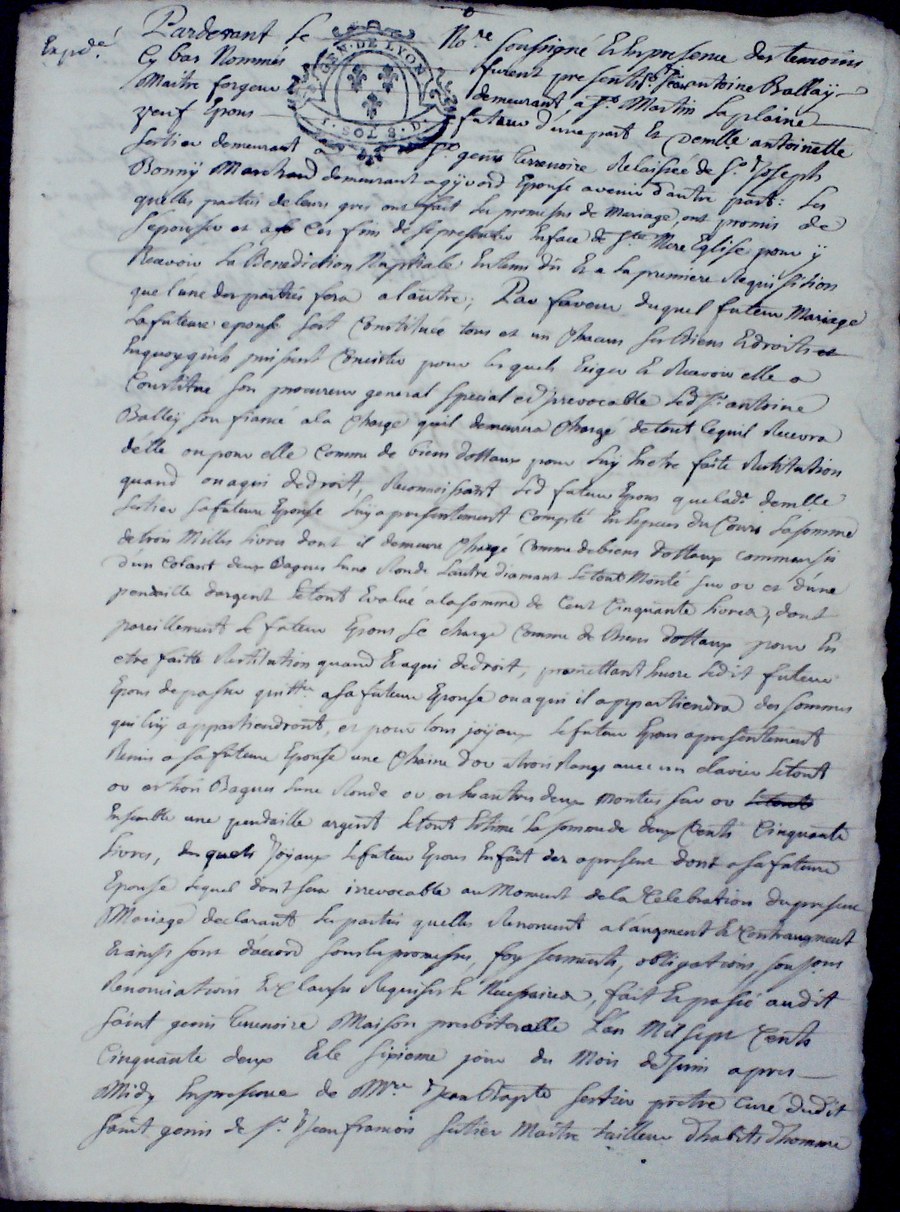 Expédé
GEN. DE LYON
1. SOLS 8. D.
Pardevant Le No.re Soussigné Et En presence des temoins
Cy bas Nommés furent presents Sr. Jean antoine Balley
Maitre forgeur demeurant a St. Martin La plaine
veuf Epoux futeur d'une part Et demlle antoinette
Sertier demeurant a St. genis terrenoire Relaissée de Sr. Joseph
Bonny Marchand demeurant a givord Epouse avenir d'autre part: Les
quelles parties de leurs grés ont fait Les promesses de Mariage, ont promis de
S'epouser et a ces fins de se presenter En face de Ste. Mère Eglise pour y
Recevoir La Benediction Nuptialle Entems dû Et a La premiere Requisition
que l'une des parties fera a l'autre; En faveur duquel futeur Mariage
La future epouse s'est Constituée tous et un Chacuns ses Biens Et droits
En quoy qu'ils puissent Consister pour Lesquels Exiger Et Recevoir elle a
Constitué Son procureur general special et irrevocable Led. Sr. antoine
Balley son fiancé a la Charge quil demeurera Chargé de tout Ce quil Recevra
d'elle ou pour elle Comme de biens dottaux pour Luy En etre faite Restitution
quand ou a qui de droit, Reconnoissant Led. futeur Epoux que lad. demlle
Sertier sa future Epouse Luy a presentement Compté En Especes du Cours La somme
de trois Milles Livres dont il demeure Chargé Comme de biens dottaux comme aussi
d'un Colant deux Bagues L'une Ronde L'autre diamant Le tout Monté sur or et d'une
pendaille d'argent Le tout Evalué a la somme de Cent Cinquante Livres, dont
pareillement Le futeur Epoux se charge Comme de Biens dottaux pour En
etre faitte Restitution quand Et a qui de droit, promettant Encore Ledit futeur
Epoux de passer quittce. a sa future Epouse ou a qui il appartiendra des sommes
qui Luy appartiendront, et pour tous joyaux Le futeur Epoux a presentement
Remis a sa future Epouse une Chaine d'or a trois Rangs avec un clavier Le tout
or et trois Bagues L'une Ronde or et Les autres deux Montées sur or Le tout
Ensemble une pendaille argent Le tout Estimé La somme de deux Cents Cinquante
Livres, desquels Joyaux Le futeur Epoux En fait des a present dont a sa future
Epouse Lequel dont sera irrevocable au Moment de la Celebration du present
Mariage declarant Les parties quelles Renoncent a l'augment Et Contraugment
Et ainsy sont d'accord sous les promesses, foy serments, obligations, soumissions
Renonciations Et Clauses Requises Et Necessaires, fait Et passé audit
Saint genis terrenoire Maison presbiteralle L'an Mil sept Cents
Cinquante deux Et le sixieme jour du Mois de Juin apres
Midy En presence de Mre. Jean Bapte Sertier pretre Curé dudit
Saint genis de Sr. Jean francois Sertier Maitre tailleur d'habits d'homme